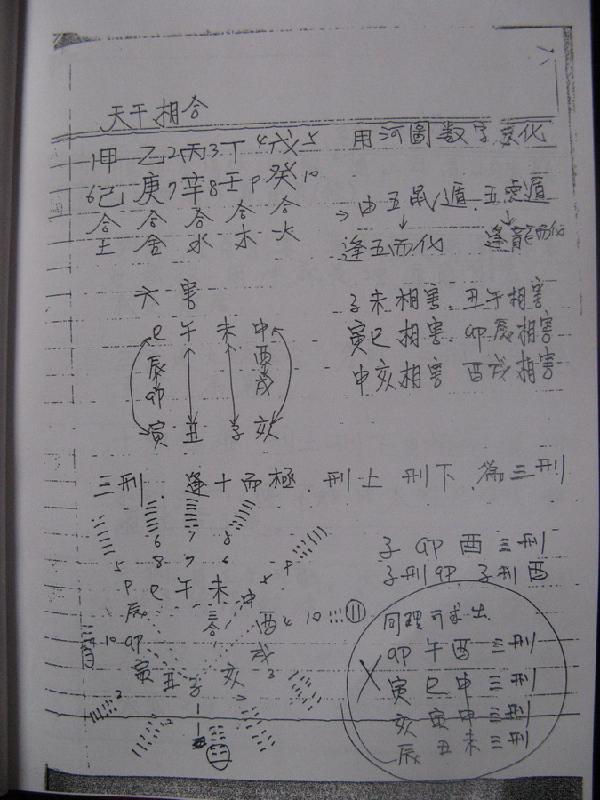 天干相合
用河圖數字变化
1甲 乙2 丙3 丁4 戊5
6己 庚7 辛8 壬9 癸10
合 合 合 合 合
土 金 水 木 火
由五鼠遁.五虎遁
逢五而化 逢龍而化
六害
巳 午 未 申
辰 酉
卯 戌
寅 丑 子 亥
子未相害.丑午相害
寅巳相害 卯辰相害
申亥相害 酉戌相害
三刑.逢十而極.刑上 刑下.為三刑
巳 午 未 申
辰 酉
卯 戌
寅 丑 子 亥
三合
子 卯 酉 三刑
子刑卯 子刑酉
同理可求出
卯午酉三刑
寅巳申三刑
亥寅申三刑
辰丑未三刑